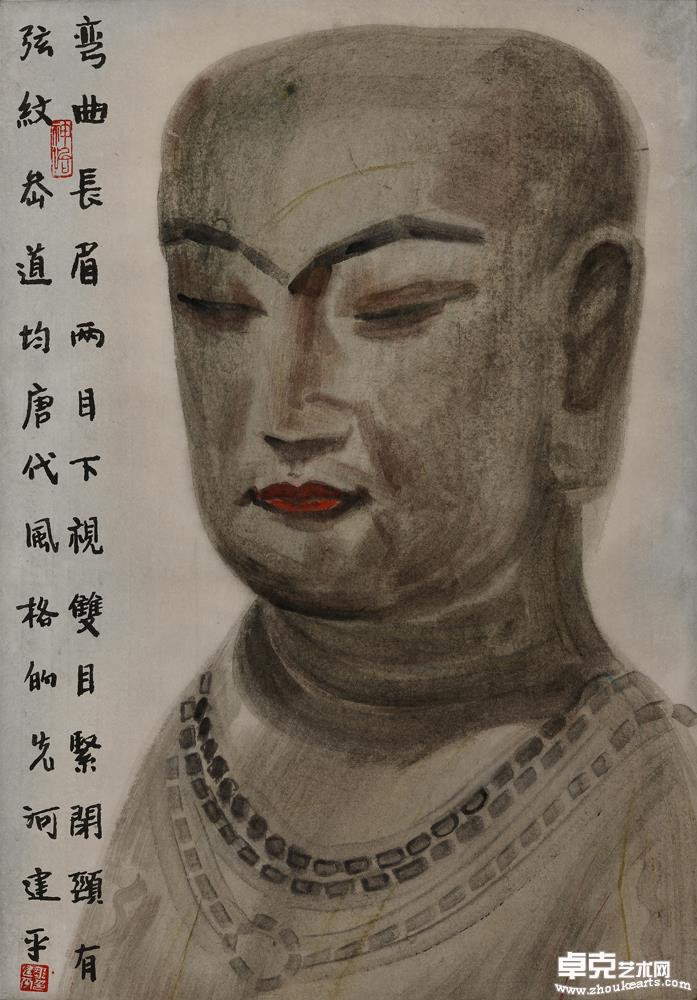 彎曲長眉兩目下視雙目緊閉頸有
弦紋叁道均唐代風格的先河建平
卓克艺术网
www.zhoukearts.com